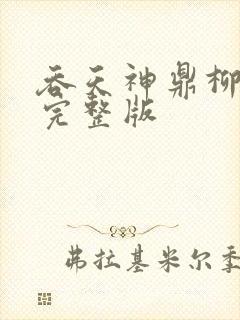 吞天神鼎柳
完整版
弗拉基米尔季